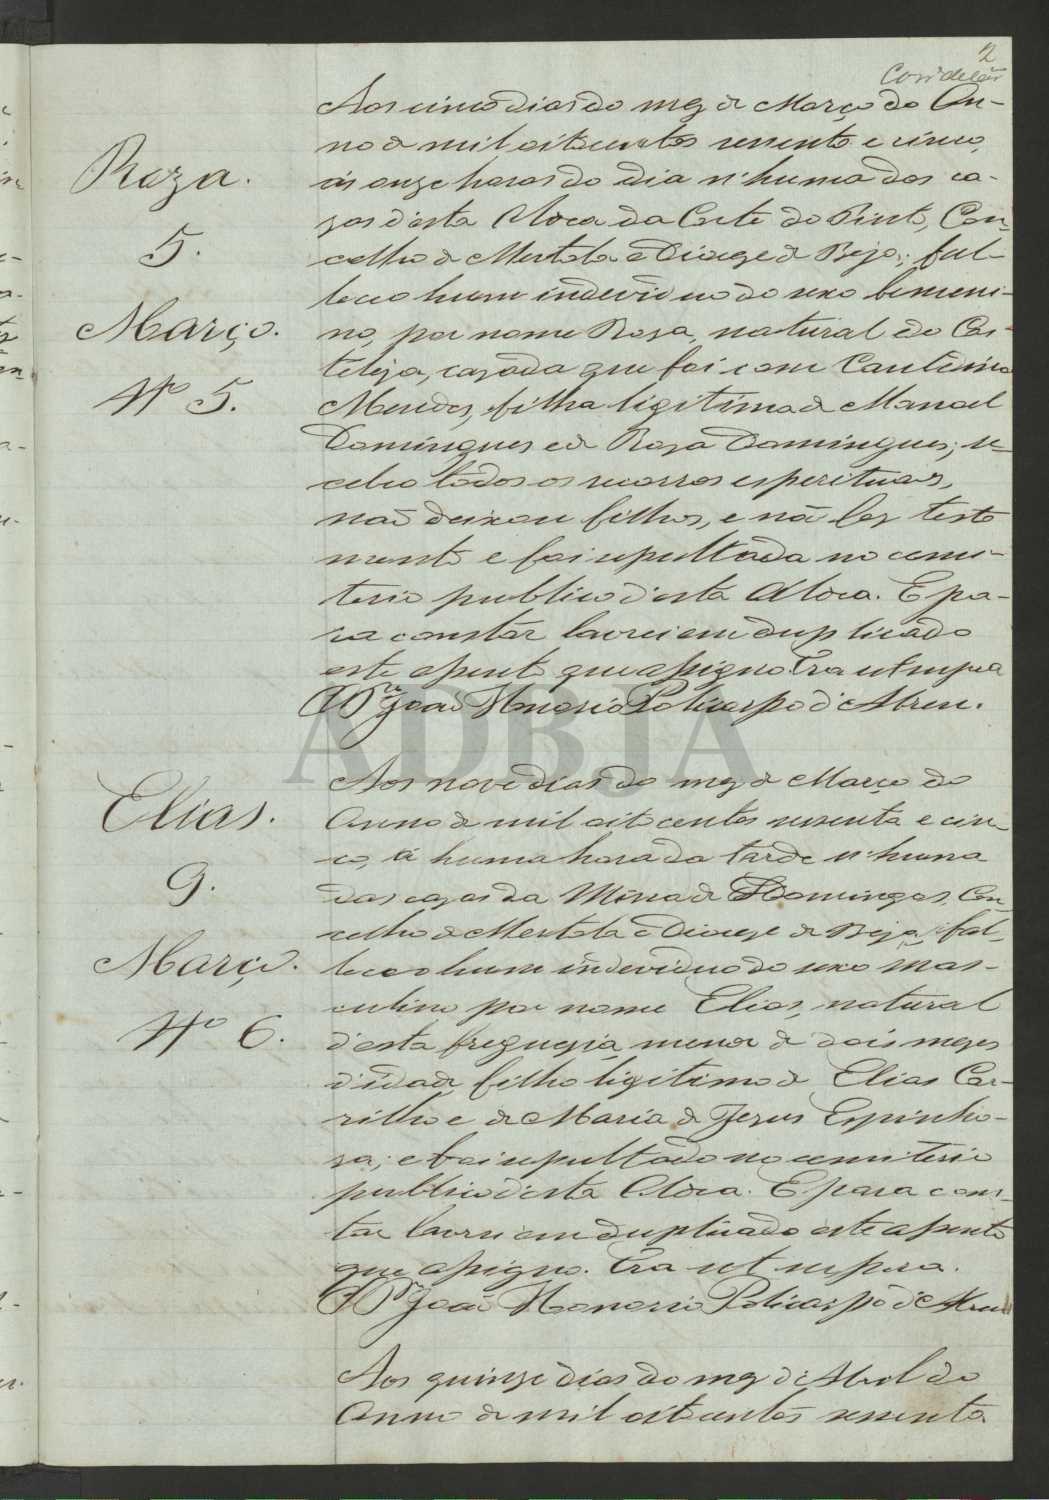 2
Aos cinco dias do mez de Março do An-
no de mil oitocentos sessenta e cinco,
ás onze horas do dia n'huma das ca-
zas d'esta Aldea da Corte do Pinto, Con-
celho de Mertola e Diocese de Beja, fal-
leceo hum individuo do sexo femeni-
no, por nome Roza, natural do Cas-
telejo, cazada que foi com
Mendes, filha ligitima de Manoel
Domingues e de Roza Domingues; re-
cebeo todos os socorros esperituaes,
não deixou filhos, e não fez testa
mento e foi sepultada no cemi-
terio publico d'esta Aldea. E pa-
ra constar lavrei em duplicado
este assento que assigno. Era ut supra
O Pr João Honorio Policarpo d'Abreu.
Roza.
5.
Março.
Nº 5.
ADBJA
Aos nove dias do mez de Março do
Anno de mil oito centos sessenta e cin-
co, á huma hora da tarde n'huma
das cazas da Mina de S Domingos, Con-
celho de Mertola e Diocese de Beja, fal-
leceo hum individuo do sexo mas-
culino por nome Elias, natural
d'esta freguezia, menor de dois mezes
d'idade filho ligitimo de Elias Car-
rilho e de Maria de Jezus Espinho-
za; e foi sepultado no cemiterio
publico d'esta Aldea. E para cons-
tar lavrei em duplicado este assento
que assigno. Era ut supra.
O Pr João Honorio Policarpo d'Abreu
Elias.
9.
Março.
Nº 6.
Aos quinze dias do mez d'Abril do
Anno de mil oitocentos sessenta